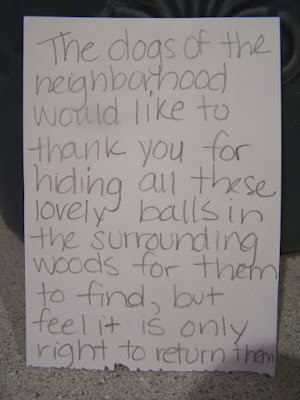 The dogs of the
neighborhood
would like to
thank you for
hiding all these
lovely balls in
the surrounding
woods for them
to find, but
feel it is only
right to return them